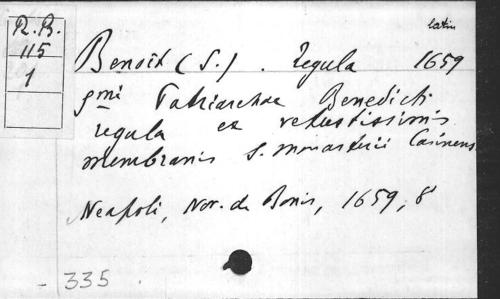 latin
R.R.
115
1
Benoît (S.). Regula 1659
smi Patriarchae Benedicti
regula ex vetustissimis
membranis S. monasterii Casinens
Neapoli, Nov. de Bonis, 1659, 8
- 335